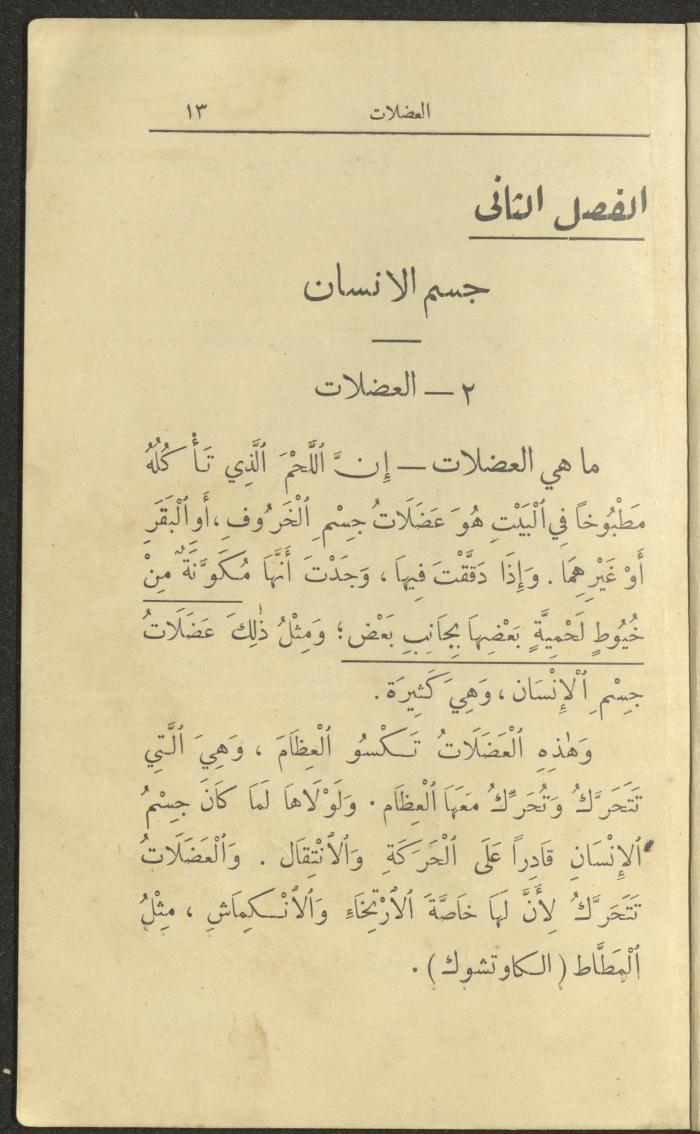 العضلات ١٣
الفصل الثانى
جسم الانسان
٢ — العضلات
ما هي العضلات — إِنَّ ٱللَّحْمَ ٱلَّذِي تَأْكُلُهُ
مَطْبُوخاً فِي ٱلْبَيْتِ هُوَ عَضَلَاتُ جِسْمِ ٱلْخَرُوفِ، أَوِ ٱلْبَقَرِ
أَوْ غَيْرِهِمَا. وَإِذَا دَقَّقْتَ فِيهَا، وَجَدْتَ أَنَّهَا مُكَوَّنَةٌ مِنْ
خُيُوطٍ لَحْمِيَّةٍ بَعْضِهَا بِجَانِبِ بَعْض؛ وَمِثْلُ ذٰلِكَ عَضَلَاتُ
جِسْمِ ٱلْإِنْسَان، وَهِيَ كَثِيرَة.
وَهٰذِهِ ٱلْعَضَلَاتُ تَكْسُو ٱلْعِظَامَ، وَهِيَ ٱلَّتِي
تَتَحَرَّكُ وَتُحَرِّكُ مَعَهَا ٱلْعِظَام. وَلَوْلَاهَا لَمَا كَانَ جِسْمُ
ٱلْإِنْسَانِ قَادِراً عَلَى ٱلْحَرَكَةِ وَٱلِٱنْتِقَال. وَٱلْعَضَلَاتُ
تَتَحَرَّكُ لِأَنَّ لَهَا خَاصَّةَ ٱلِٱرْتِخَاءِ وَٱلِٱنْكِمَاشِ، مِثْلُ
ٱلْمَطَّاط (الكاوتشوك).